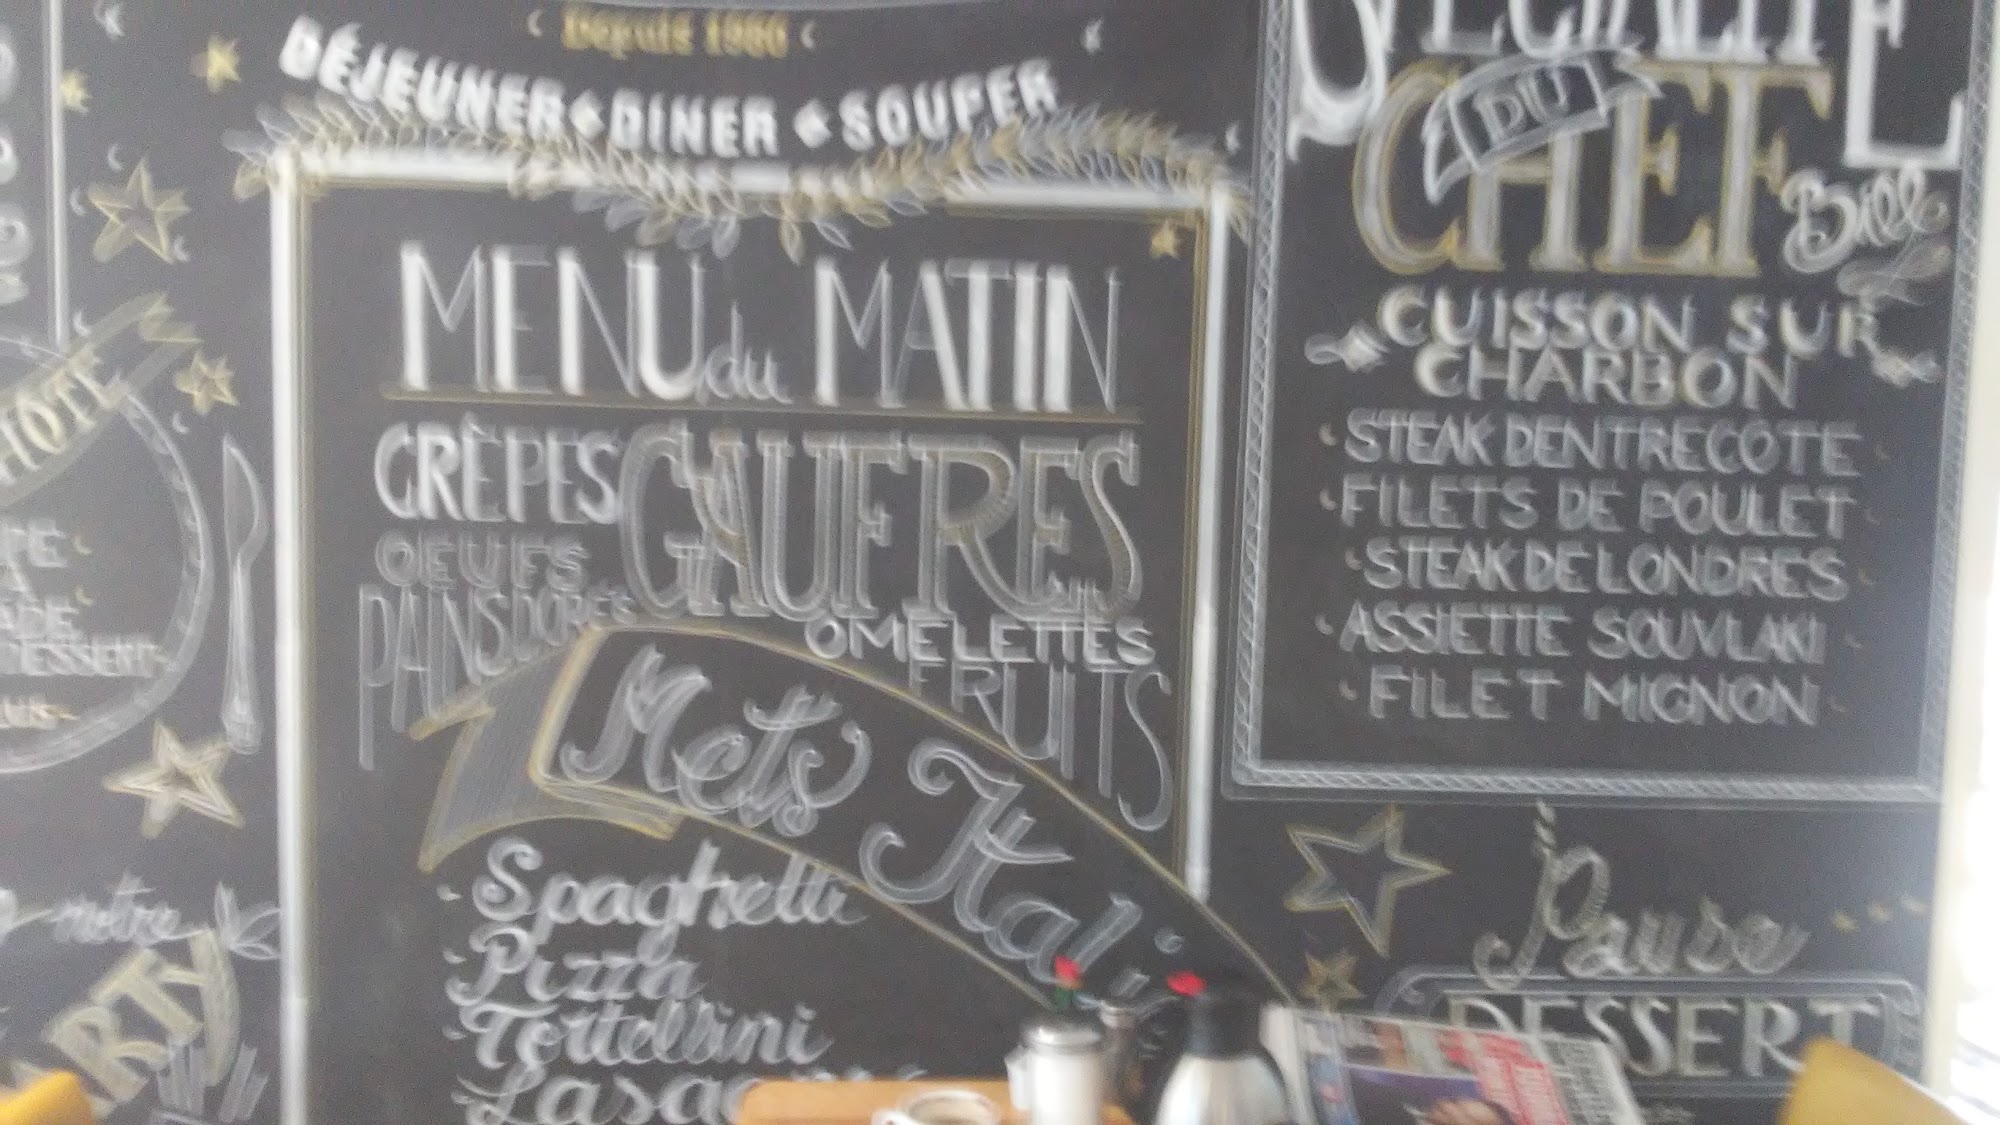 Depuis 1980
DÉJEUNER DINER SOUPER
MENU du MATIN
CRÊPES GAUFRES
OEUFS
PAINS DORÉS
OMELETTES
FRUITS
Mets Ital
Spaghetti
Pizza
Tortellini
SPÉCIALITÉ
DU
CHEF
Bill
CUISSON SUR
CHARBON
STEAK DENTRECOTE
FILETS DE POULET
STEAK DE LONDRES
ASSIETTE SOUVLAKI
FILET MIGNON
Pause
DESSERT
HOTE
DESSERT
notre